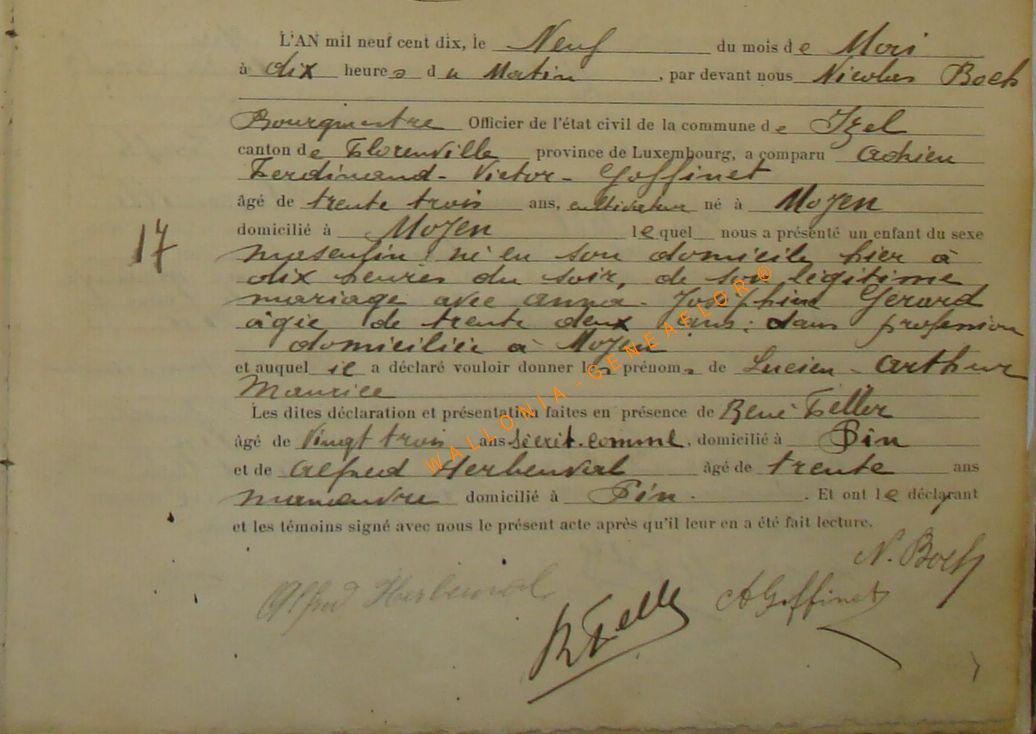 L'AN mil neuf cent dix, le Neuf du mois de Mai
à dix heures du Matin, par devant nous Nicolas Boch
Bourgmestre Officier de l'état civil de la commune de Izel
canton de Florenville province de Luxembourg, a comparu Adrien
Ferdinand - Victor - Goffinet
âgé de trente trois ans, cultivateur né à Moyen
domicilié à Moyen lequel nous a présenté un enfant du sexe
masculin né en son domicile hier à
dix heures du soir, de son légitime
mariage avec Anna - Joséphine Gérard
âgée de trente deux ans; sans profession
domiciliée à Moyen
et auquel il a déclaré vouloir donner les prénoms de Lucien - Arthur
Maurice
Les dites déclaration et présentation faites en présence de René Feller
âgé de Vingt trois ans Secrét. comml, domicilié à Pin
et de Alfred Herbeuval âgé de trente ans
manoeuvre domicilié à Pin. Et ont le déclarant
et les témoins signé avec nous le présent acte après qu'il leur en a été fait lecture.
17
WALLONIA - GENEAFLOR ®
N. Boch
Alfred Herbeuval
R Feller
A Goffinet